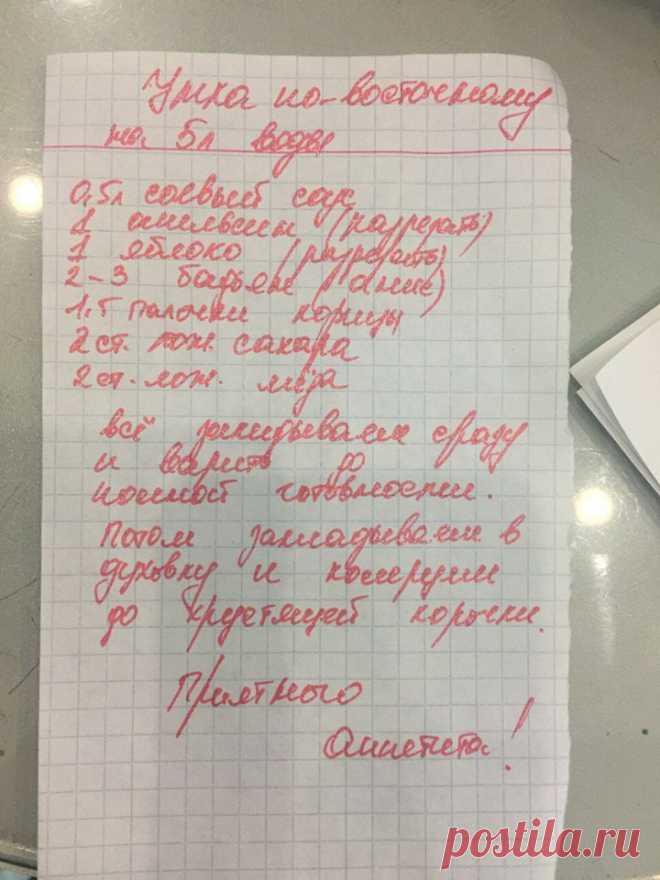 Утка по-восточному
на 5л воды
0,5л соевый соус
1 апельсин (разрезать)
1 яблоко (разрезать)
2-3 бадьян (анис)
1,5 палочки корицы
2 ст. лож. сахара
2 ст. лож. мёда
всё закидываем сразу
и варить до
полной готовности.
Потом закладываем в
духовку и
до хрустящей корочки.
Приятного
Аппетита!
postila.ru